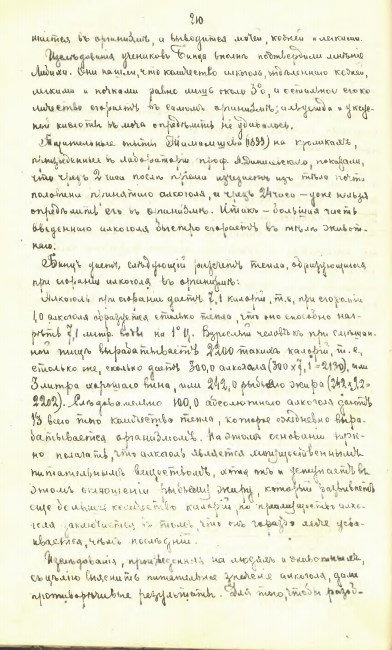 20
нится въ организмѣ, и выводится мочей, кожей и легкими.
Изслѣдованія учениковъ Бинца вполнѣ подтвердили мнѣніе
Они нашли, что количество алкоголя, выдѣленнаго кожей,
легкими и почками равно лишь около 3%, а остальное его ко-
личество сгораетъ въ самомъ организмѣ; альдегида и уксус-
ной кислоты въ мочѣ опредѣлить не удавалось.
Тщательные опыты (1899) на кроликахъ,
произведенные въ лабораторіи проф. показали,
что чрезъ 2 часа послѣ пріема изъ тѣла почти
половина принятаго алкоголя, а чрезъ 24 часа – уже нельзя
опредѣлить его въ организмѣ. Итакъ – большая часть
введеннаго алкоголя быстро сгораетъ въ тѣлѣ живот-
наго.
Бинцъ даетъ слѣдующій разсчетъ тепла, образующагося
при сгораніи алкоголя въ организмѣ:
Алкоголь при сгораніи даетъ 7,1 калорій, т.е. при сгораніи
1,0 алкоголя образуется столько тепла, что оно способно наг-
рѣть 7,1 литр. воды на 1° Ц. Взрослый человѣкъ при смѣшан-
ной пищѣ вырабатываетъ 2200 такихъ калорій, т.е.
столько же, сколько даетъ 300,0 алкоголя (300 х 7,1 = 2130), или
3 литра хорошаго вина, или 242,0 рыбьяго жира (242 х 9,1 =
2202). Слѣдовательно 100,0 абсолютнаго алкоголя даютъ
1/3 всего того количества тепла, которое ежедневно выра-
батывается организмомъ. На этомъ основаніи нуж-
но полагать, что алкоголь является могущественнымъ
питательнымъ веществомъ, хотя онъ и уступаетъ въ
этомъ отношеніи рыбьему жиру, который развиваетъ
еще большее количество калорій, но преимущество алко-
голя заключается въ томъ, что онъ гораздо легче усва-
ивается, чѣмъ послѣдній.
Изслѣдованія, произведенныя на людяхъ и животныхъ,
съ цѣлью выяснить питательное значеніе алкоголя, дали
противорѣчивые результаты. Для того, чтобы разоб-